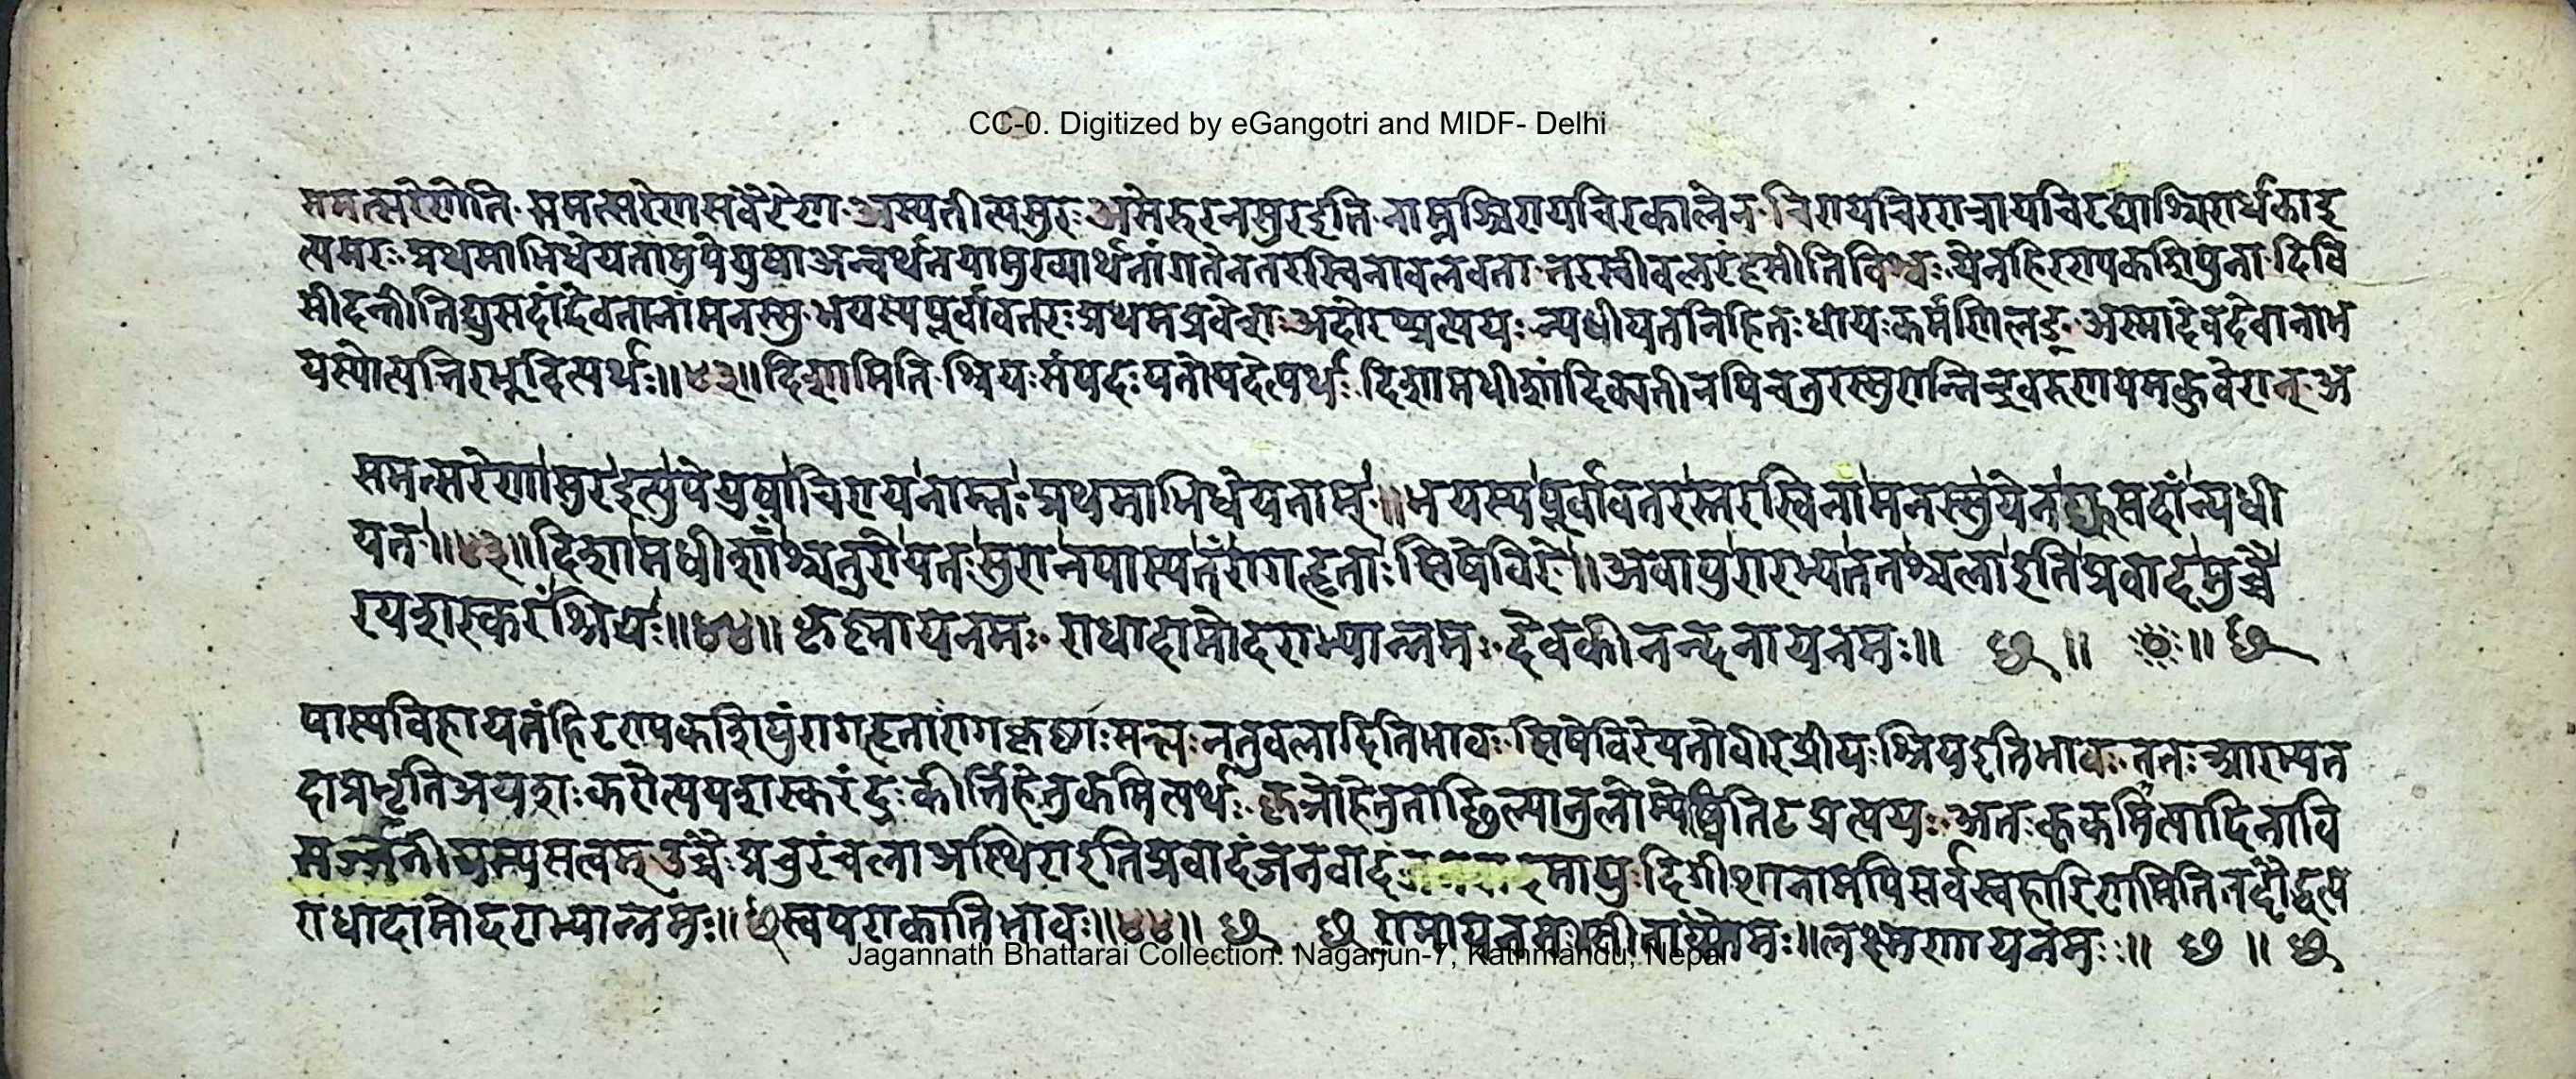 CC-0. Digitized by eGangotri and MIDF- Delhi
समत्सरेणेति समत्सरेण सवैरेण अस्यतीत्यसुरः असेरुरनसुर इति नाम्नश्चिराय चिरकालेन चिराय चिररात्राय चिरस्याश्चिरार्थका इ
त्यमरः प्रथमाभिधेयतामुपेयुषा अन्वर्थतया मुख्यार्थतां गतेन तरस्विना बलवता तरस्वी येन हिरण्यकशिपुना दिवि
सीदन्तीति द्युसदां देवतानां मनस्सु भयस्य पूर्वावतरः प्रथमप्रवेशः न्यधीयत निहितः कर्मणि लङ् अस्मादेव देवानां भ
यस्योत्पत्तिरभूदित्यर्थः॥४३॥ दिशामिति श्रियः संपदः दिशामधीशां दिक्पतीनपि चतुरस्सुरान्
समत्सरेणासुर इत्युपेयुषा चिराय नाम्नः प्रथमाभिधेयताम्॥ भयस्य पूर्वावतरस्तरस्विना मनस्सु येन द्युसदां न्यधी
यत॥४३॥ दिशामधीशांश्चतुरो यतः सुरानपास्य तं रागहृताः सिषेविरे॥ अवापुरारभ्य ततश्चला इति प्रवादमुच्चै
रयशस्करं श्रियः॥४४॥ कृष्णाय नमः राधादामोदराभ्यान्नमः देवकीनन्दनाय नमः॥ छ॥ ॥ छ
पास्य विहाय तं हिरण्यकशिपुं रागहृता रागकृष्टाः सत्यः न तु बलादिति भावः सिषेविरे यतो वीरप्रियाः श्रिय इति भावः ततः आरभ्य त
दाप्रभृति अयशः करोत्ययशस्करं दुःकीर्त्तिहेतुकमित्यर्थः कृञो हेतुताच्छील्यानुलोम्येष्विति टप्रत्ययः अतः कृकमित्यादिना वि
सर्जनीयस्य सत्वम् उच्चैः प्रचुरं चला अस्थिरा इति प्रवादं जनवादं मापुः दिगीशानामपि सर्वस्वहारिणामिति
राधादामोदराभ्यान्नमः॥ छ भावः॥४४॥ छ छ रामाय नमः लक्ष्मणाय नमः॥ छ॥ छ
Jagannath Bhattarai Collection. Nagarjun-7, Kathmandu, Nepal